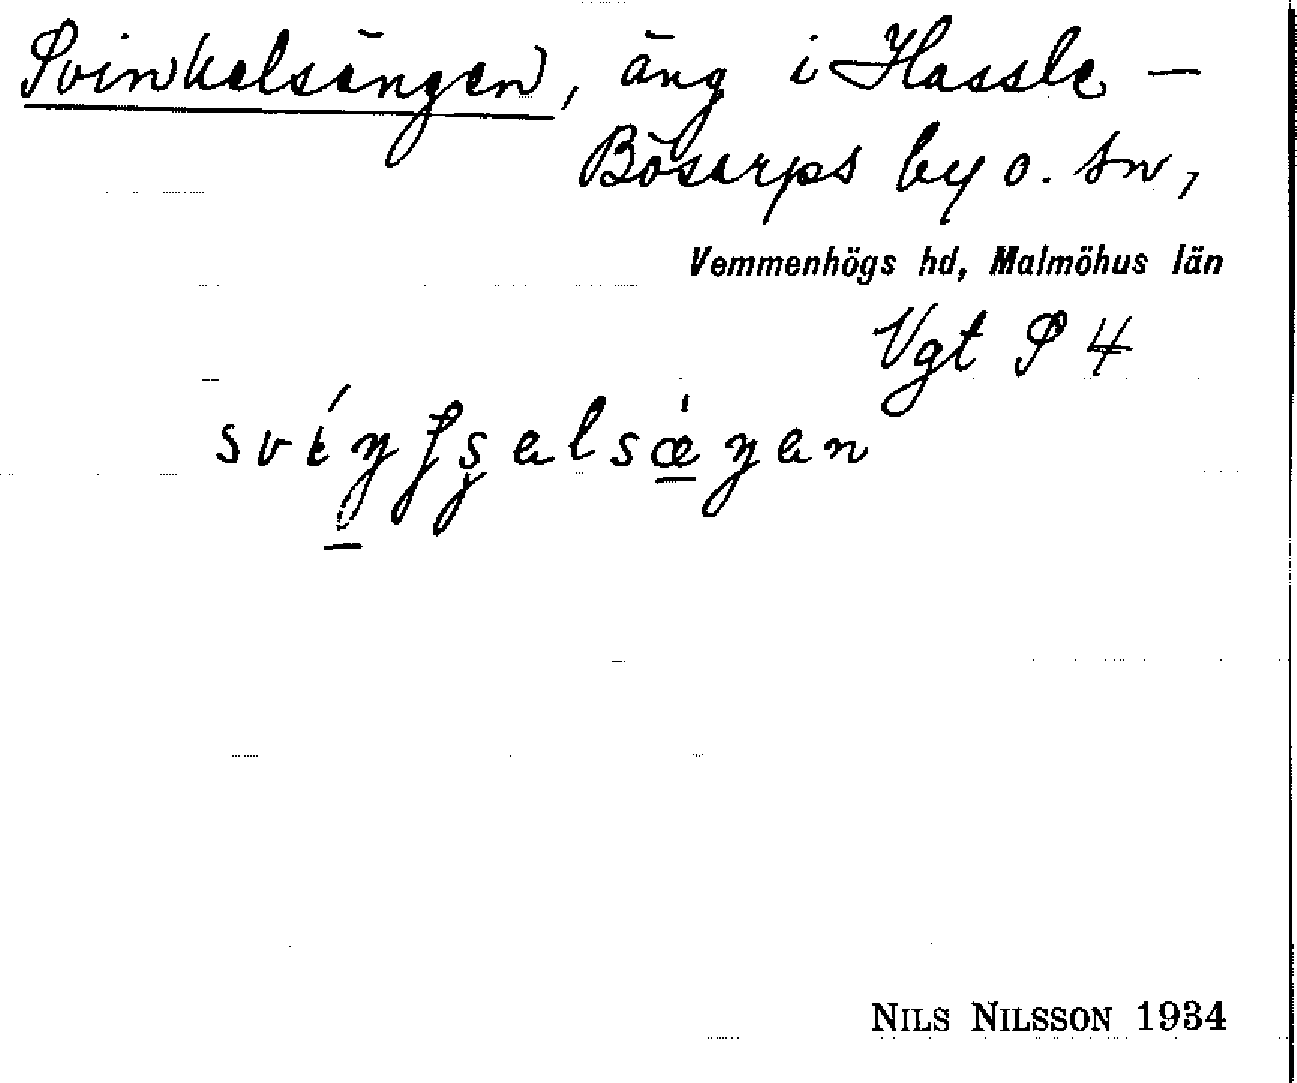 Svinkelsängen, äng i Hassle –
Bösarps by o. sn,
Vemmenhögs hd, Malmöhus län
Vgt S 4
NILS NILSSON 1934